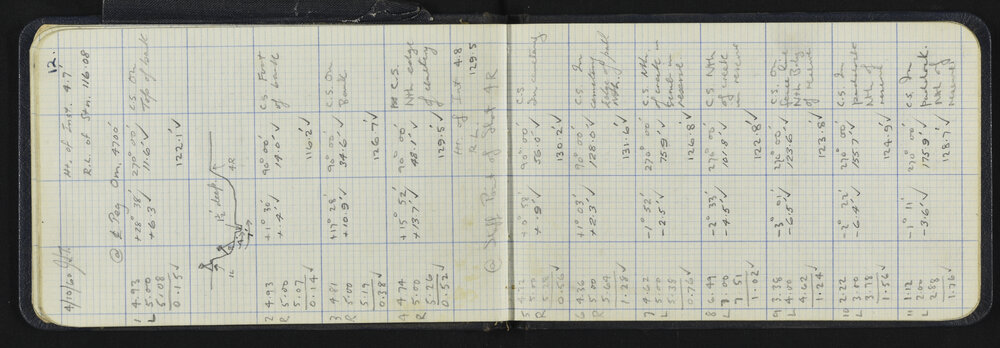 12.
4/10/60
Ht. of Inst. 4.7'
R.L. of Stn. 116.08
@ Peg Om, 4700'
1 4.93 +28° 38' 270° 00' C.S. On
L 5.00 +6.3 ✓ 11.6 ✓ Top of bank
5.08
0.15 ✓ 122.1 ✓
1½' deep
4R
2 4.93 +1° 30' 90° 00' C.S. Foot
R 5.00 +.4 ✓ 14.0 ✓ of bank
5.07
0.14 ✓ 116.2 ✓
3 4.81 +17° 28' 90° 00' C.S. On
R 5.00 +10.9 ✓ 34.6 ✓ Bank
5.19
0.38 ✓ 126.7 ✓
4 4.74 +15° 52' 90° 00' C.S.
R 5.00 +13.7 ✓ 48.1 ✓ Nth edge
5.26 of cemetery
0.52 ✓ 129.5 ✓
Ht. of Inst 4.8
@ Diff Pint of Shot 4R R L 129.5
5 4.72 +0° 58' 90° 00' C.S.
R 5.00 +.9 ✓ 56.0 ✓ In cemetery
5.28
0.56 ✓ 130.2 ✓
6 4.36 +1° 03' 90° 00' C.S. In
R 5.00 +2.3 ✓ 128.0 ✓ cemetery
5.64 edge of
1.28 ✓ 131.6 ✓
7 4.62 -1° 52' 270° 00' C.S. Nth.
L 5.00 -2.5 ✓ 75.9 ✓ of creek in
5.38
0.76 ✓ 122.8 ✓ reserve
8 6.49 -2° 33' 270° 00' C.S. Nth
L 7.00 -4.5 ✓ 101.8 ✓ of creek
7.51 in
1.02 ✓ 122.8 ✓ reserve
9 3.38 -3° 01' 270° 00' C.S. On
L 4.00 -6.5 ✓ 123.6 ✓ fence line
4.62 Nth Bdy
1.24 ✓ 123.8 ✓ of reserve
10 2.22 -2° 22' 270° 00' C.S. In
L 3.00 -6.4 ✓ 155.7 ✓ paddock
3.78 Nth of
1.56 ✓ 124.9 ✓ reserve
11 1.12 -1° 11' 270° C.S. In
L 2.00 -3.6 ✓ 175.9 ✓ paddock.
2.88 Nth of
1.76 ✓ 128.7 ✓ reserve